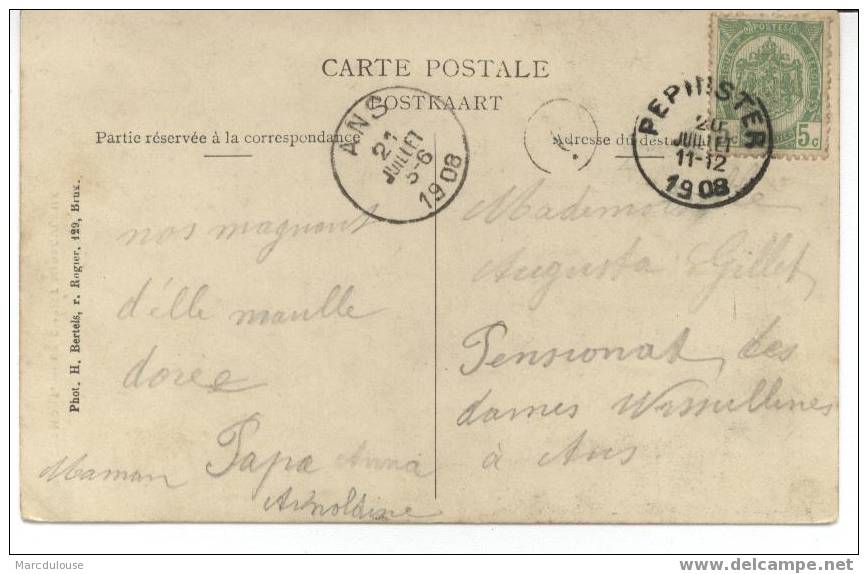 CARTE POSTALE
POSTKAART
Partie réservée à la correspondance
Adresse du
ANS
21
JUILLET
5-6
1908
PEPINSTER
20
JUILLET
11-12
1908
POSTES
5c
Phot. H. Bertels, r. Rogier, 129, Brux.
nos magnont
d'élle maulle
doree
Papa Anna
Maman
Arnoldine
Mademoiselle
Augusta Gillet
Pensionat des
dames Ursullines
à Ans.
Marcdulouse
delcampe.net